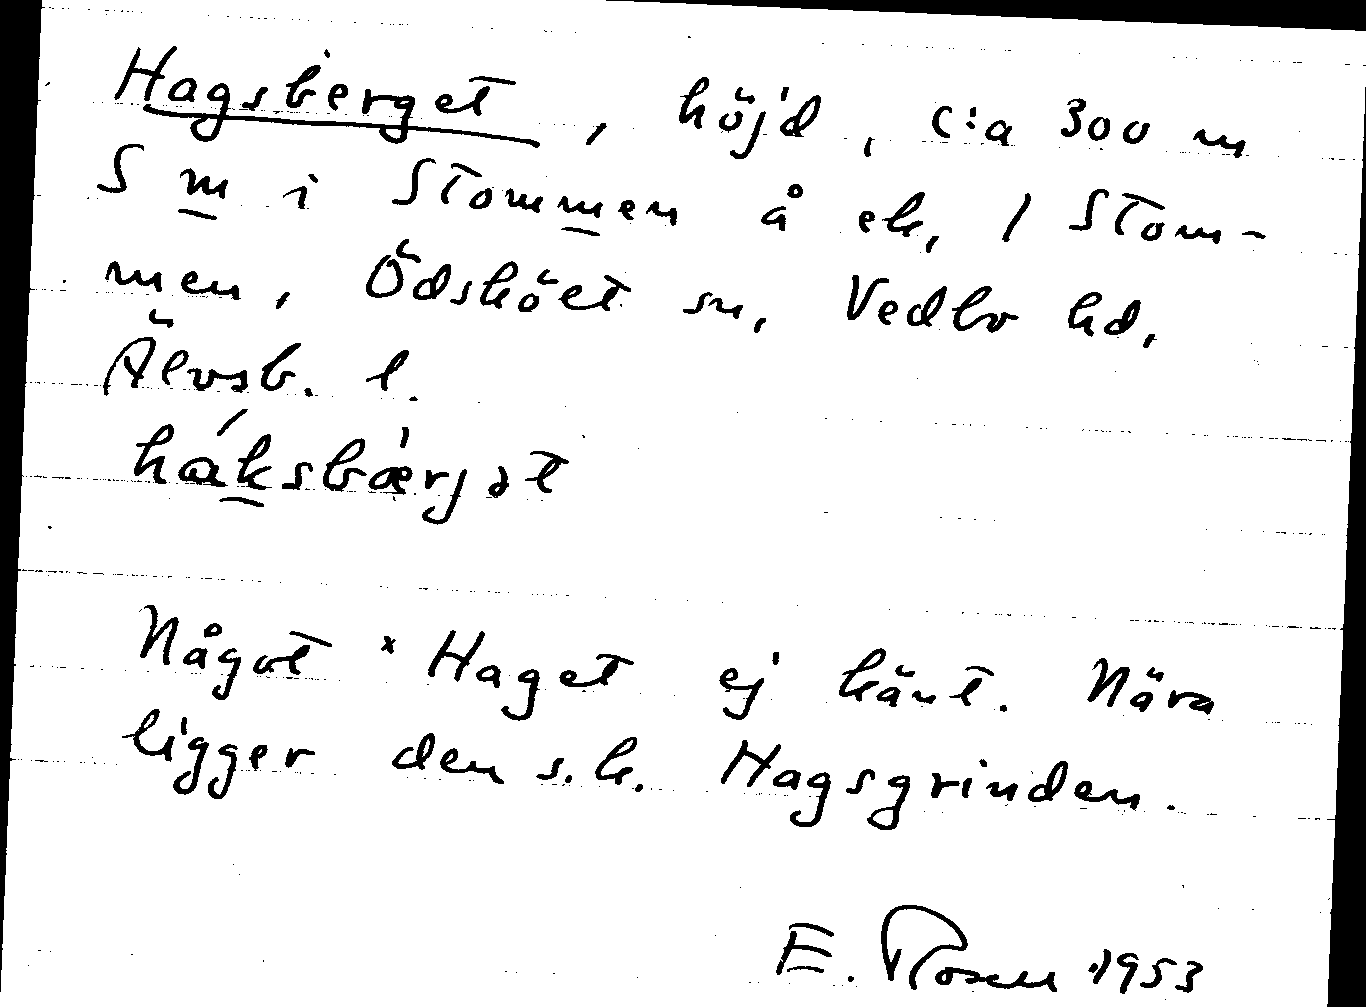 Hagsberget, höjd, c:a 300 m
S m i Stommen å ek, 1 Stom-
men, Ödsköet sn, Vedbo hd,
Älvsb. l.
háksbærjət
Något * Haget ej känt. Nära
ligger den s.k. Hagsgrinden.
E. Rosell 1953